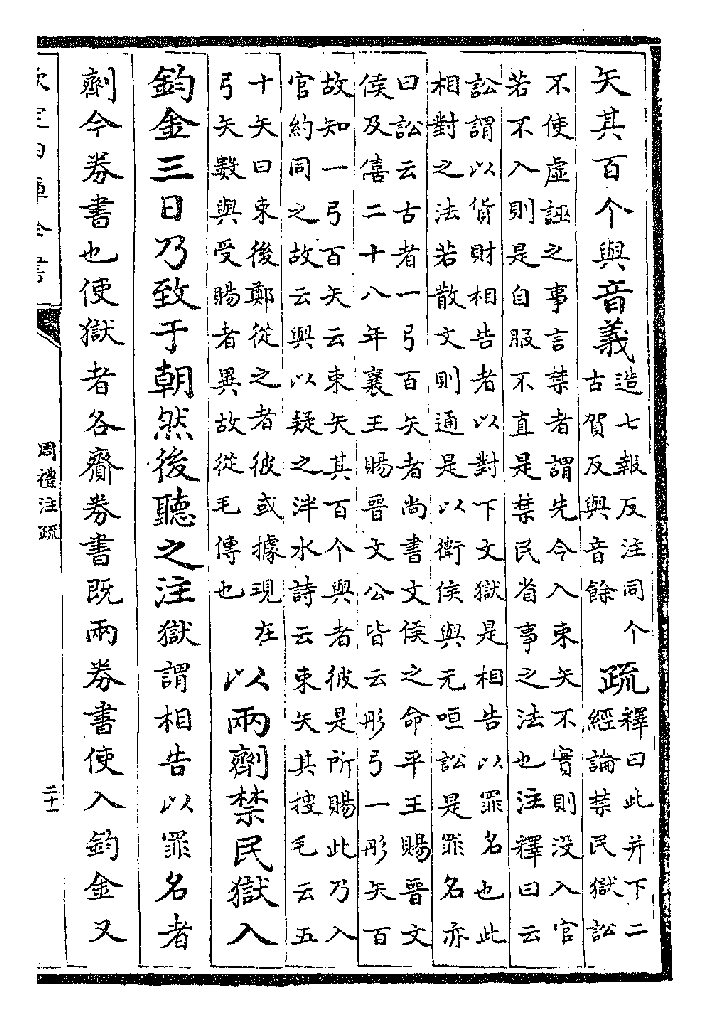 矢其百个與音義造七報反注同个
古賀反與音餘疏釋曰此并下二
經論禁民獄訟
不使虛誣之事言禁者謂先令入束矢不實則没入官
若不入則是自服不直是禁民省事之法也注釋曰云
訟謂以貨財相告者以對下文獄是相告以罪名也此
相對之法若散文則通是以衛侯與元咺訟是罪名亦
曰訟云古者一弓百矢者尚書文侯之命平王賜晉文
侯及僖二十八年襄王賜晉文公皆云彤弓一彤矢百
故知一弓百矢云束矢其百个與者彼是所賜此乃入
官約同之故云與以疑之泮水詩云束矢其搜毛云五
十矢曰束後鄭從之者彼或據現在
弓矢數與受賜者異故從毛傳也以兩劑禁民獄入
鈞金三日乃致于朝然後聽之注獄謂相告以罪名者
劑今券書也使獄者各齎券書既兩券書使入鈞金又
欽定四庫全書
周禮注疏
二十一